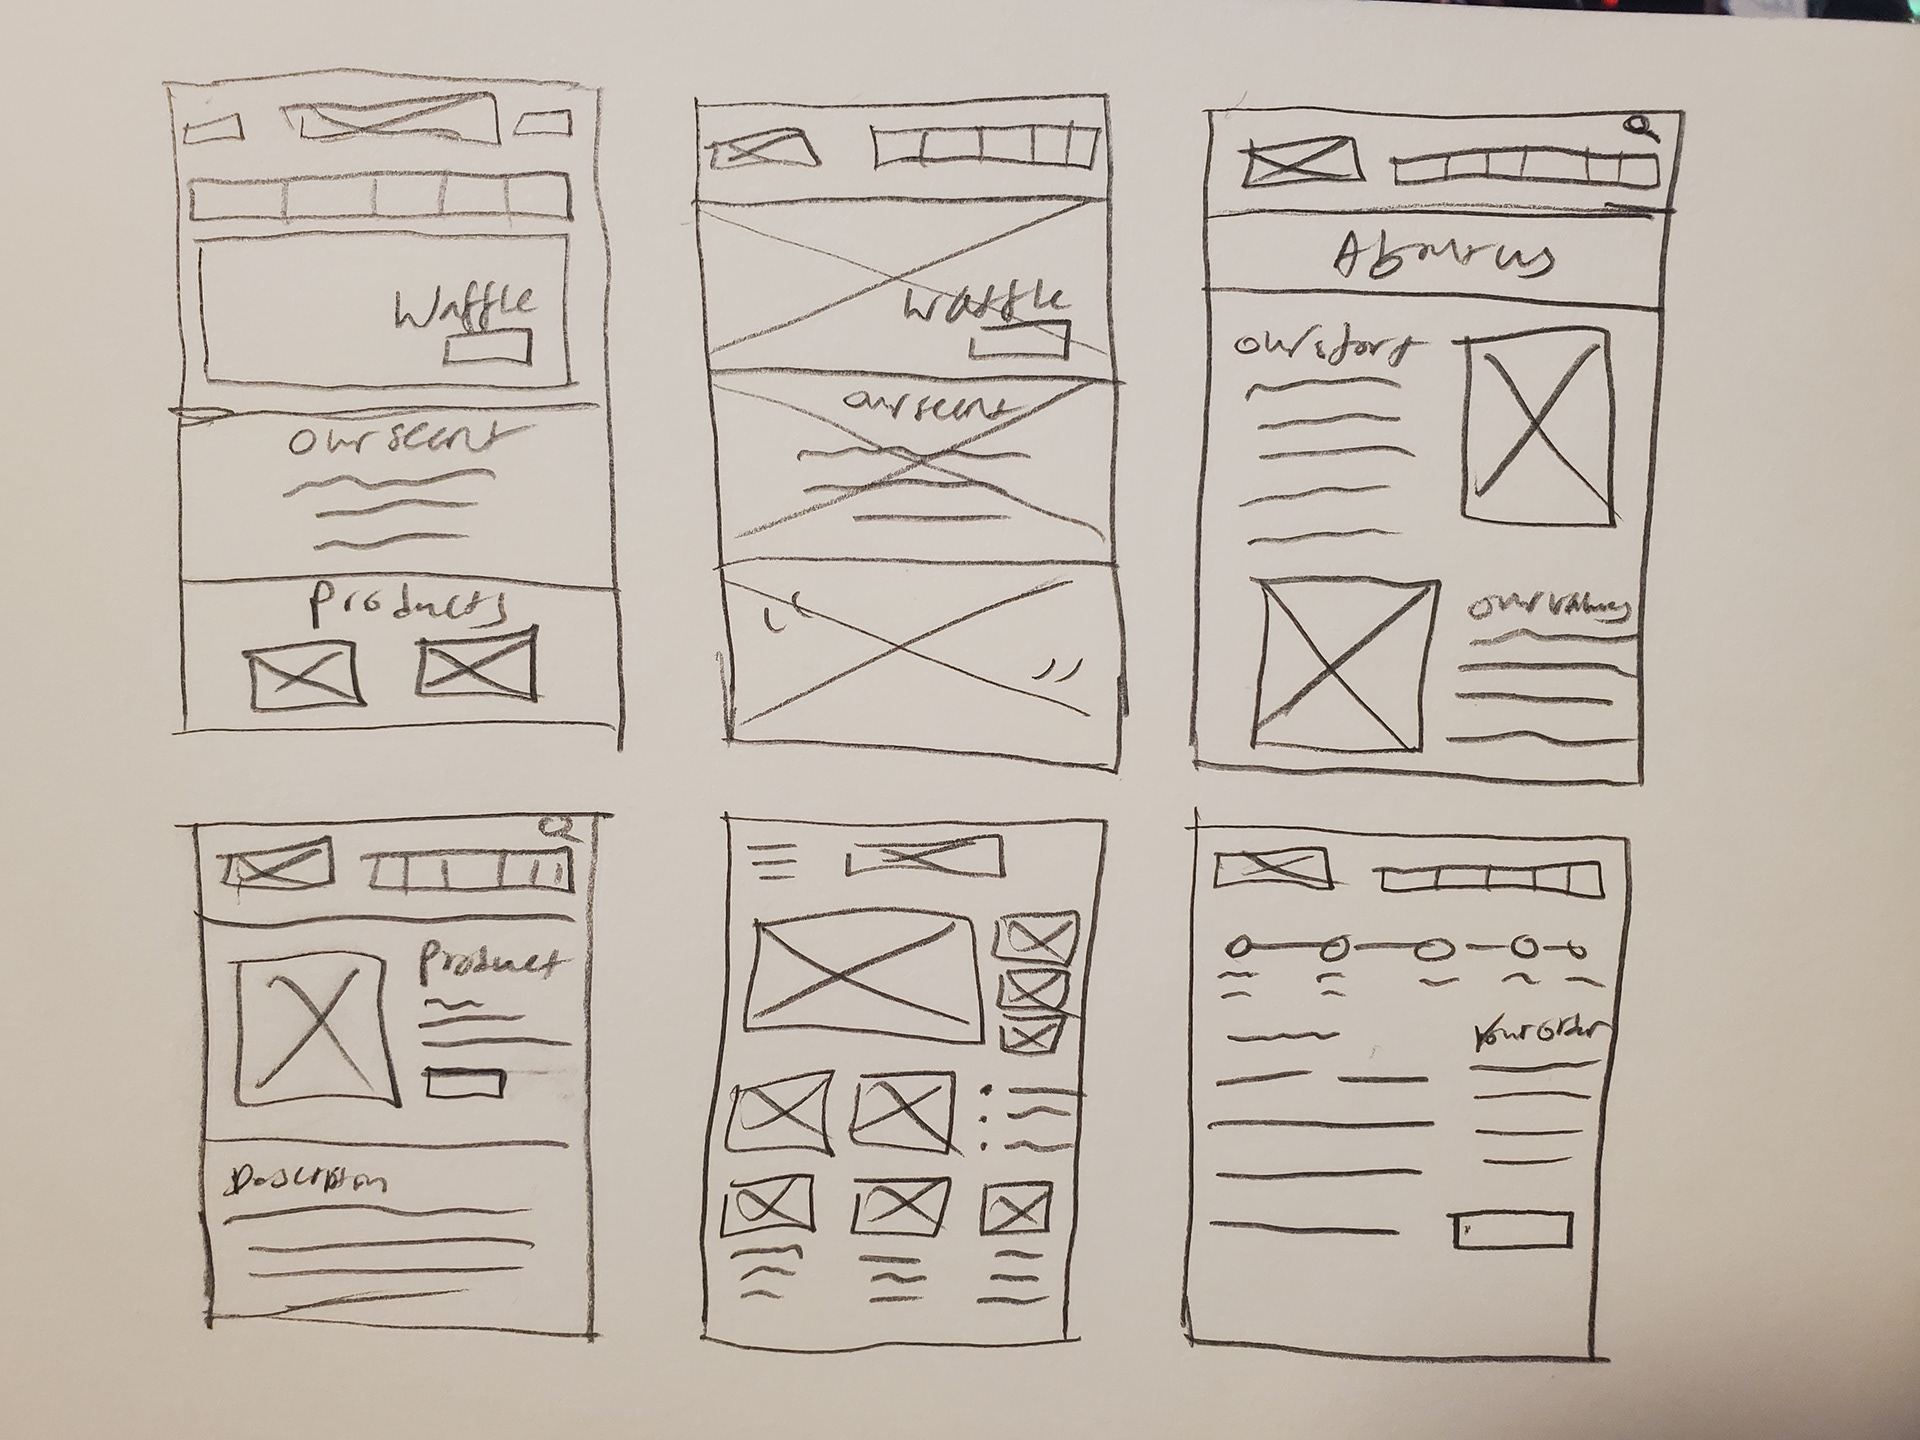 Waffle
Our scent
Products
Waffle
our scent
“
”
About us
Our story
Our values
Product
Description
Your order